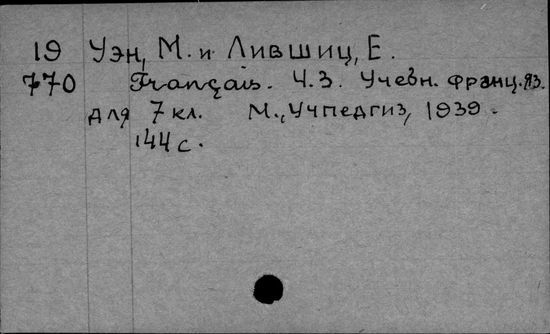 19 Уэн, М. и Лившиц, Е.
770 Français. Ч.3. Учебн. франц. яз.
для 7 кл. М., Учпедгиз, 1939.
144 с.